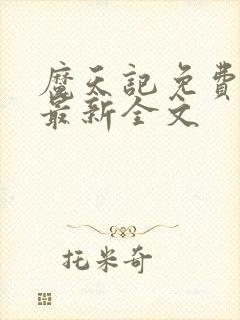 魔天記免費
最新全文
托米奇